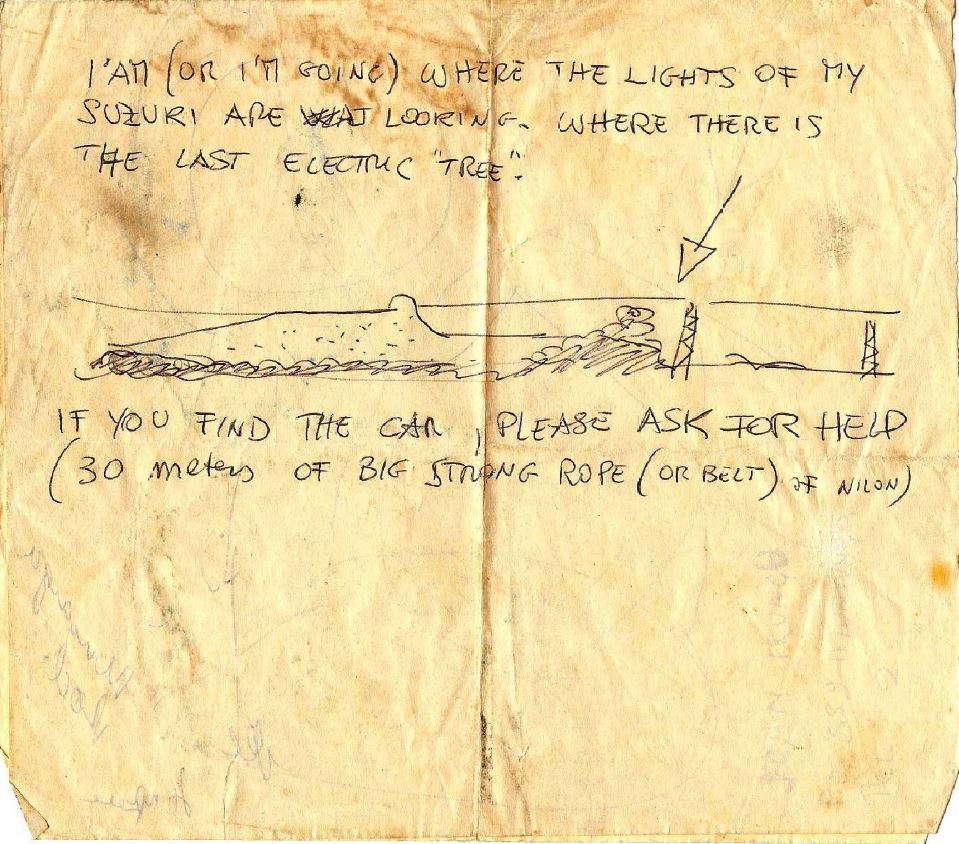 I'AM (OR I'M GOING) WHERE THE LIGHTS OF MY
SUZUKI ARE LOOKING. WHERE THERE IS
THE LAST ELECTRIC "TREE".
IF YOU FIND THE CAR, PLEASE ASK FOR HELP
(30 meters OF BIG STRONG ROPE (OR BELT) OF NILON)